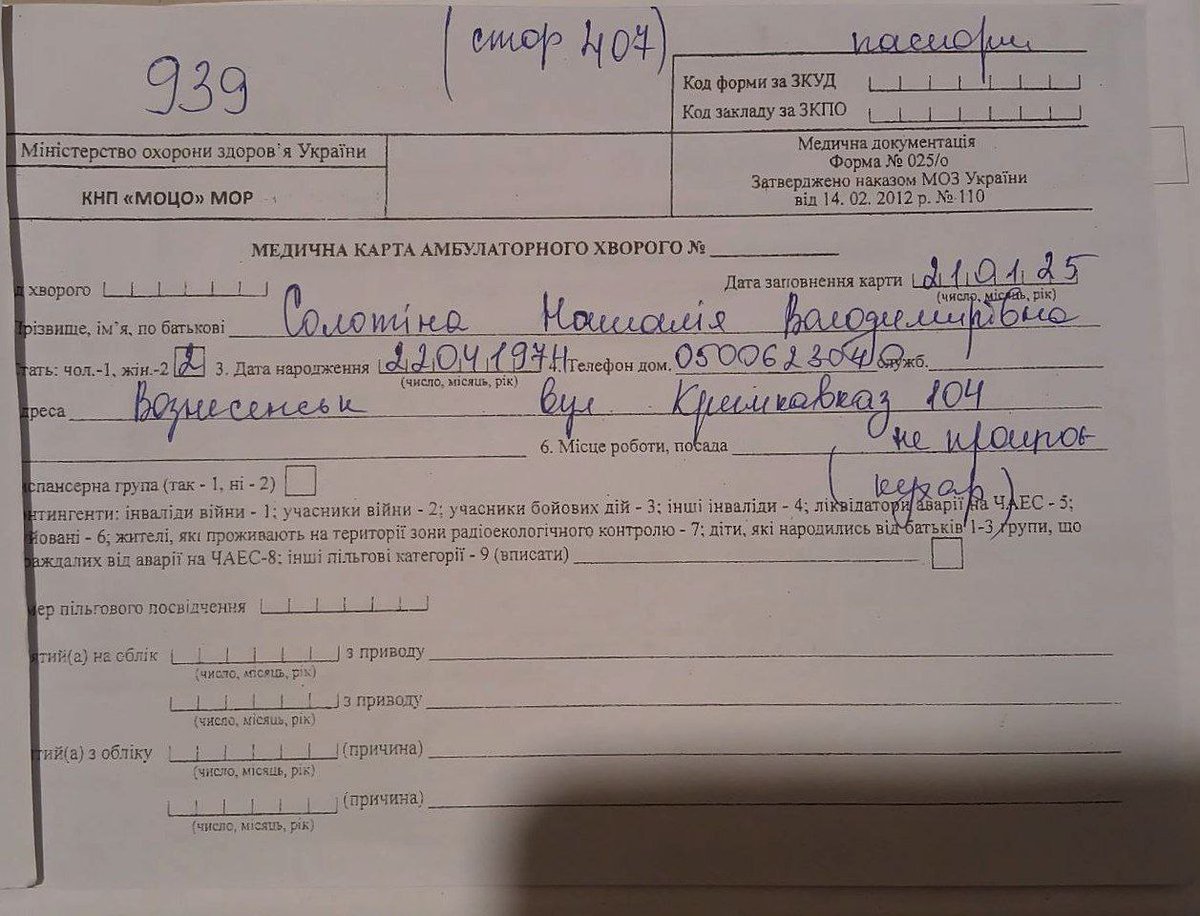 (стор 407)
паспорт
939
Код форми за ЗКУД
Код закладу за ЗКПО
Міністерство охорони здоров`я України
КНП «МОЦО» МОР
Медична документація
Форма № 025/о
Затверджено наказом МОЗ України
від 14. 02. 2012 р. № 110
МЕДИЧНА КАРТА АМБУЛАТОРНОГО ХВОРОГО №
Дата заповнення карти 21 01 25
(число, місяць, рік)
д хворого
Прізвище, ім’я, по батькові Солотіна Наталія Володимирівна
тать: чол.-1, жін.-2 2 3. Дата народження 22 04 1974 4. Телефон дом. 0500623040 служб.
(число, місяць, рік)
дреса Вознесенськ вул Кримкавказ 104
6. Місце роботи, посада не працює
(кухар)
испансерна група (так - 1, ні - 2)
нтингенти: інваліди війни - 1; учасники війни - 2; учасники бойових дій - 3; інші інваліди - 4; ліквідатори аварії на ЧАЕС - 5;
йовані - 6; жителі, які проживають на території зони радіоекологічного контролю - 7; діти, які народились від батьків 1-3 групи, що
раждалих від аварії на ЧАЕС-8; інші пільгові категорії - 9 (вписати)
мер пільгового посвідчення
ятий(а) на облік з приводу
(число, місяць, рік)
з приводу
(число, місяць, рік)
тий(а) з обліку (причина)
(число, місяць, рік)
(причина)
(число, місяць, рік)